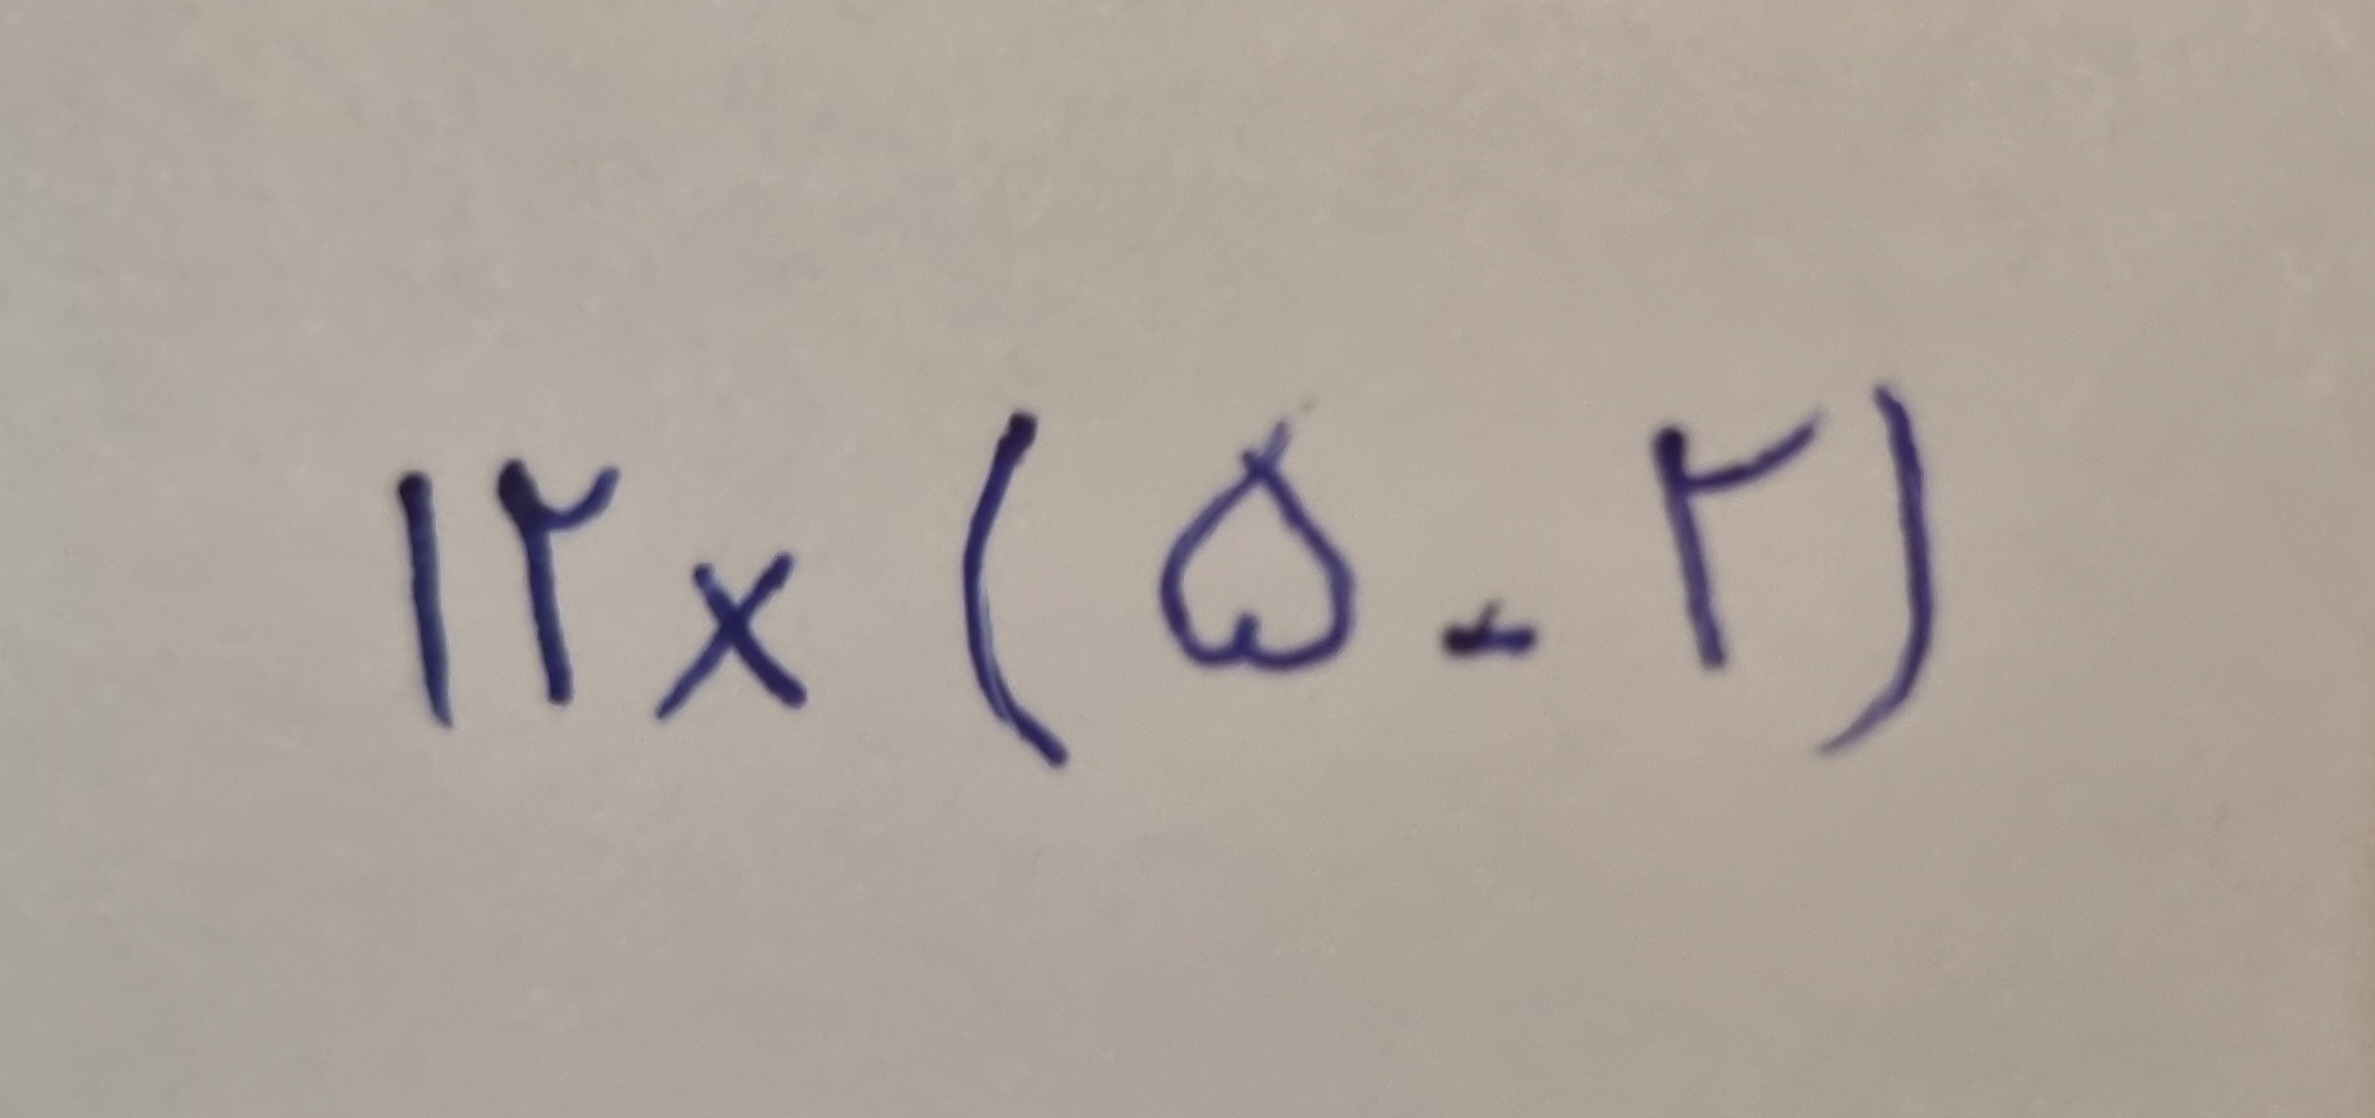 ۱۲ × ( ۵ - ۲ )